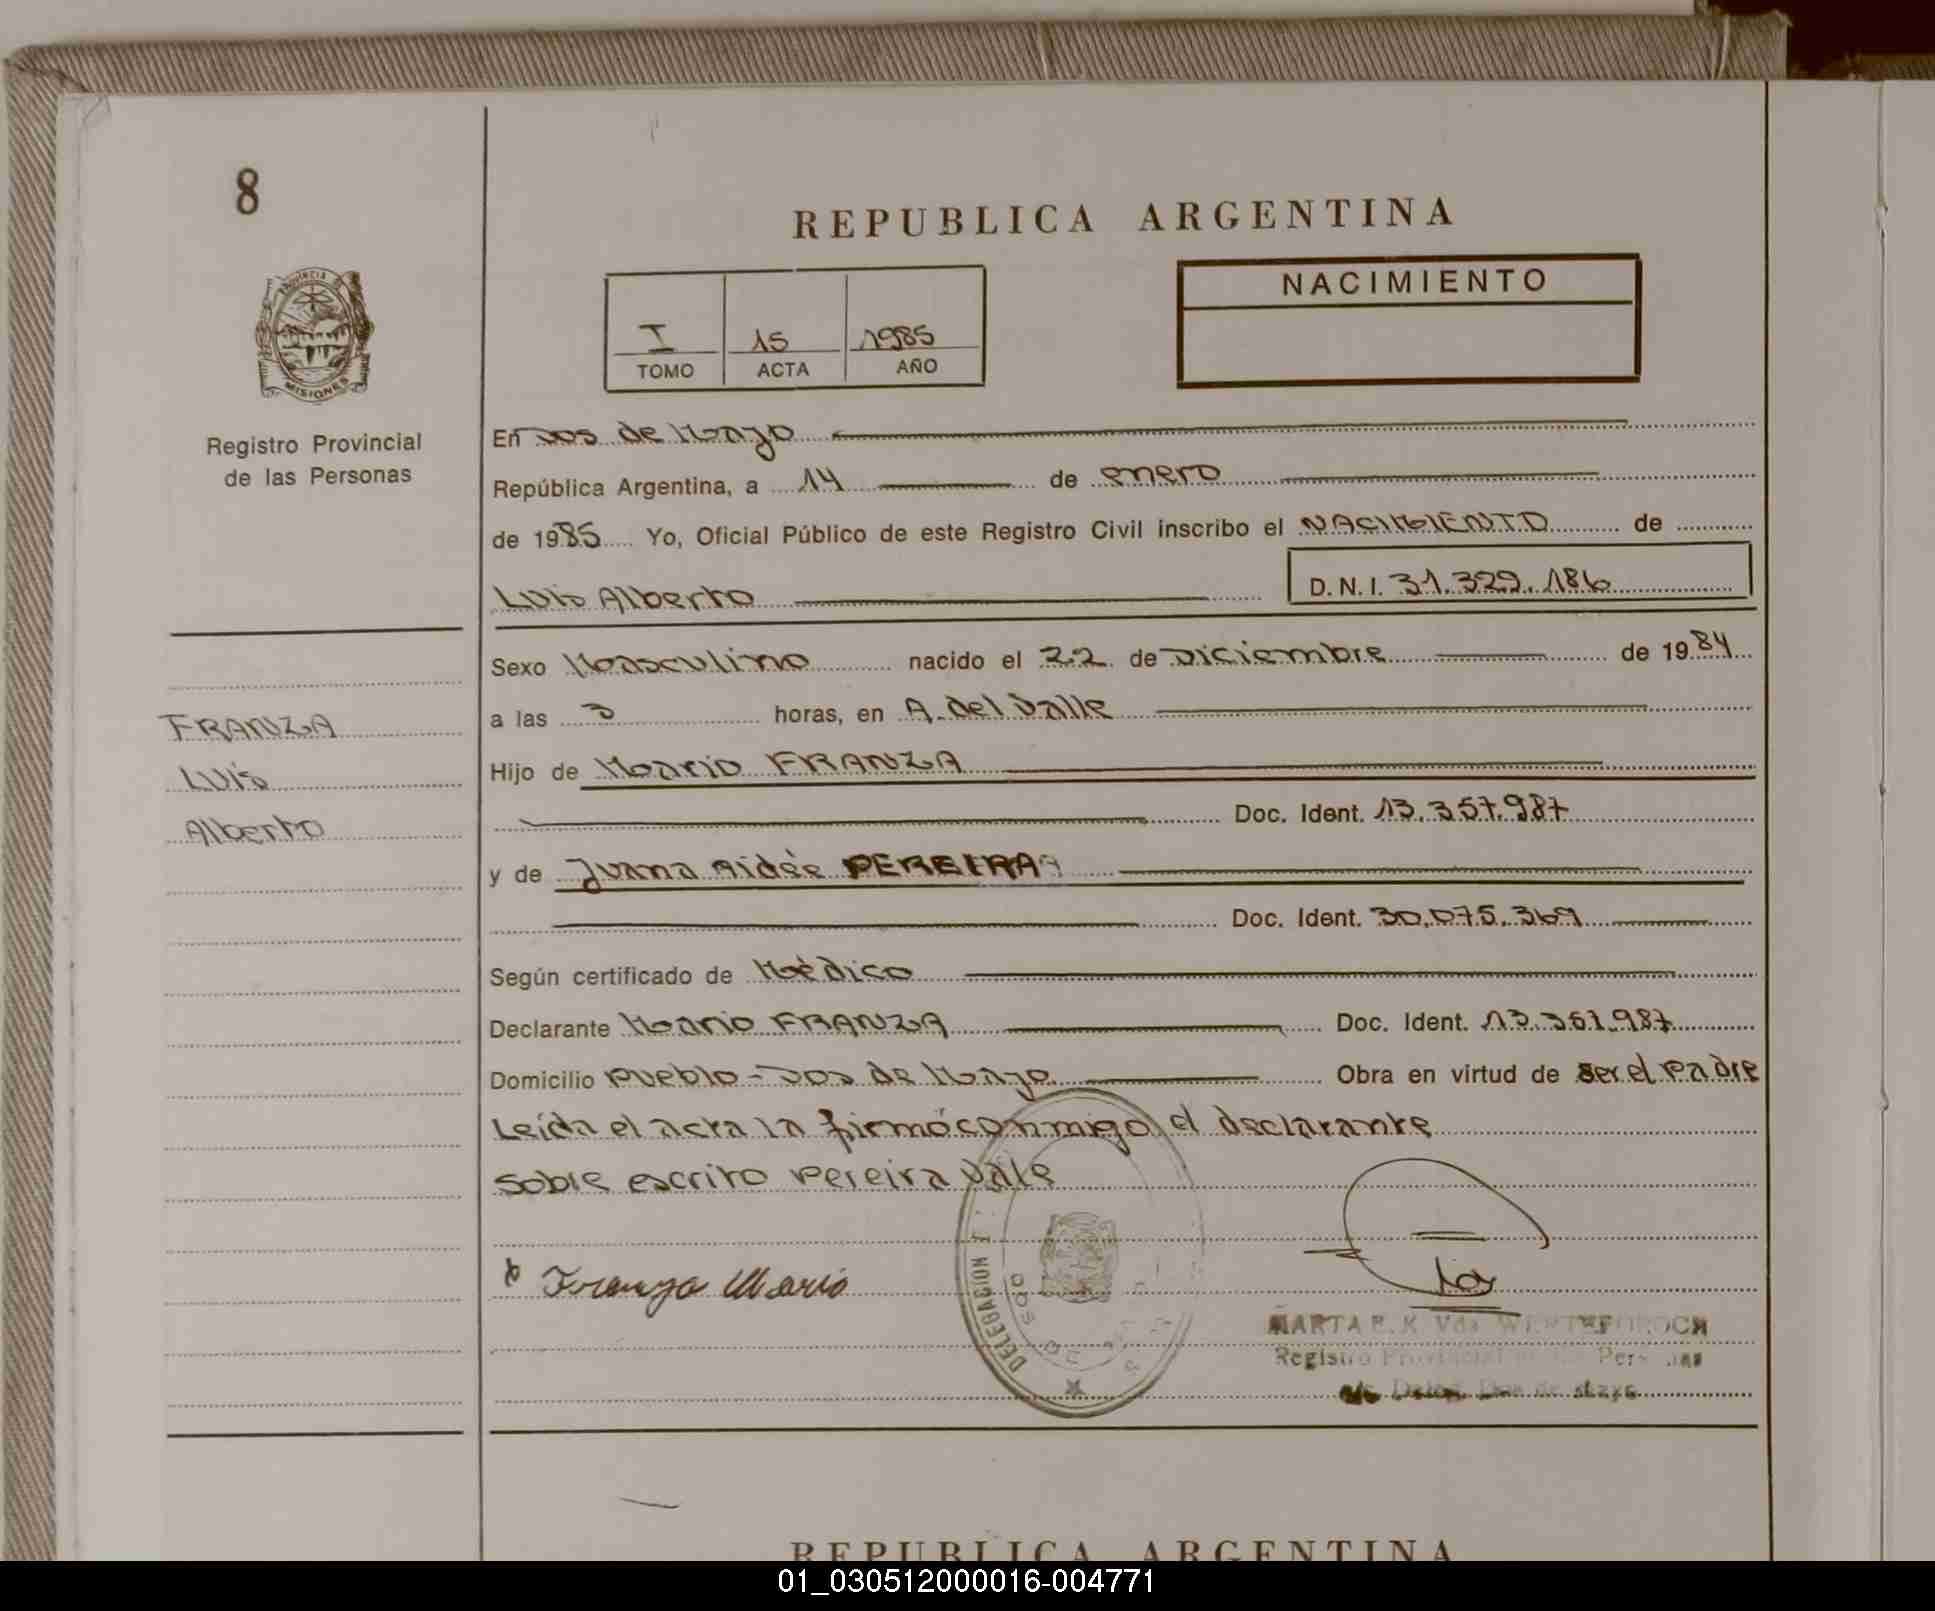 8
REPUBLICA ARGENTINA
PROVINCIA
MISIONES
NACIMIENTO
I 15 1985
TOMO ACTA AÑO
Registro Provincial
de las Personas
En Dos de Mayo
República Argentina, a 14 de enero
de 1985 Yo, Oficial Público de este Registro Civil inscribo el NACIMIENTO de
Luis Alberto D.N.I. 31.329.186
Sexo Masculino nacido el 22 de Diciembre de 1984
FRANZA
Luis
Alberto
a las 3 horas, en A. del Valle
Hijo de Mario FRANZA
Doc. Ident. 13.357.987
y de Juana Aidée PEREIRA
Doc. Ident. 30.075.369
Según certificado de Médico
Declarante Mario FRANZA Doc. Ident. 13.357.987
Domicilio Pueblo - Dos de Mayo Obra en virtud de ser el padre
Leída el acta la firmó conmigo el declarante
Sobre escrito Pereira Vale
Franza Mario
DELEGACION
DOS DE
MARTA E. K. Vda.
Registro Provincial de las Personas
a/c Deleg. Dos de Mayo
REPUBLICA ARGENTINA
01_030512000016-004771